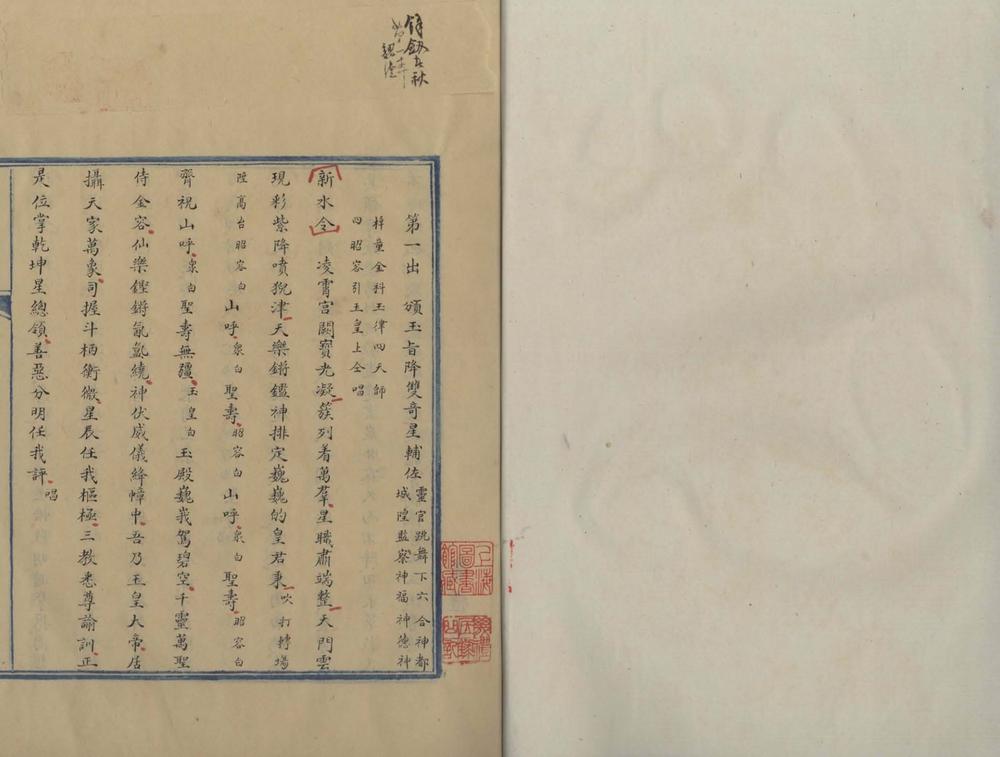 第一出 頒玉旨降雙奇星輔佐
靈官跳舞下六合神都
城隍監察神福神德神
梓童金科玉律四天師
四昭容引玉皇上仝唱
新水令 凌霄宮闕寶光凝簇列着萬羣星職肅端整天門雲
現彩紫降噴猊津天樂鏘鏘神排定巍巍的皇君秉吹打轉場
陞高台昭容白 山呼衆白 聖壽昭容白 山呼衆白 聖壽昭容白
齊祝山呼衆白聖壽無疆玉皇白玉殿巍我駕碧空千靈萬聖
侍金容仙樂鏗鏘氤氳繞神伏威儀絳幃中吾乃玉皇大帝居
攝天家萬象司握斗柄衡微星辰任我樞極三教悉尊諭訓正
是位掌乾坤星總領善惡分明任我評唱
上海
圖書
館藏